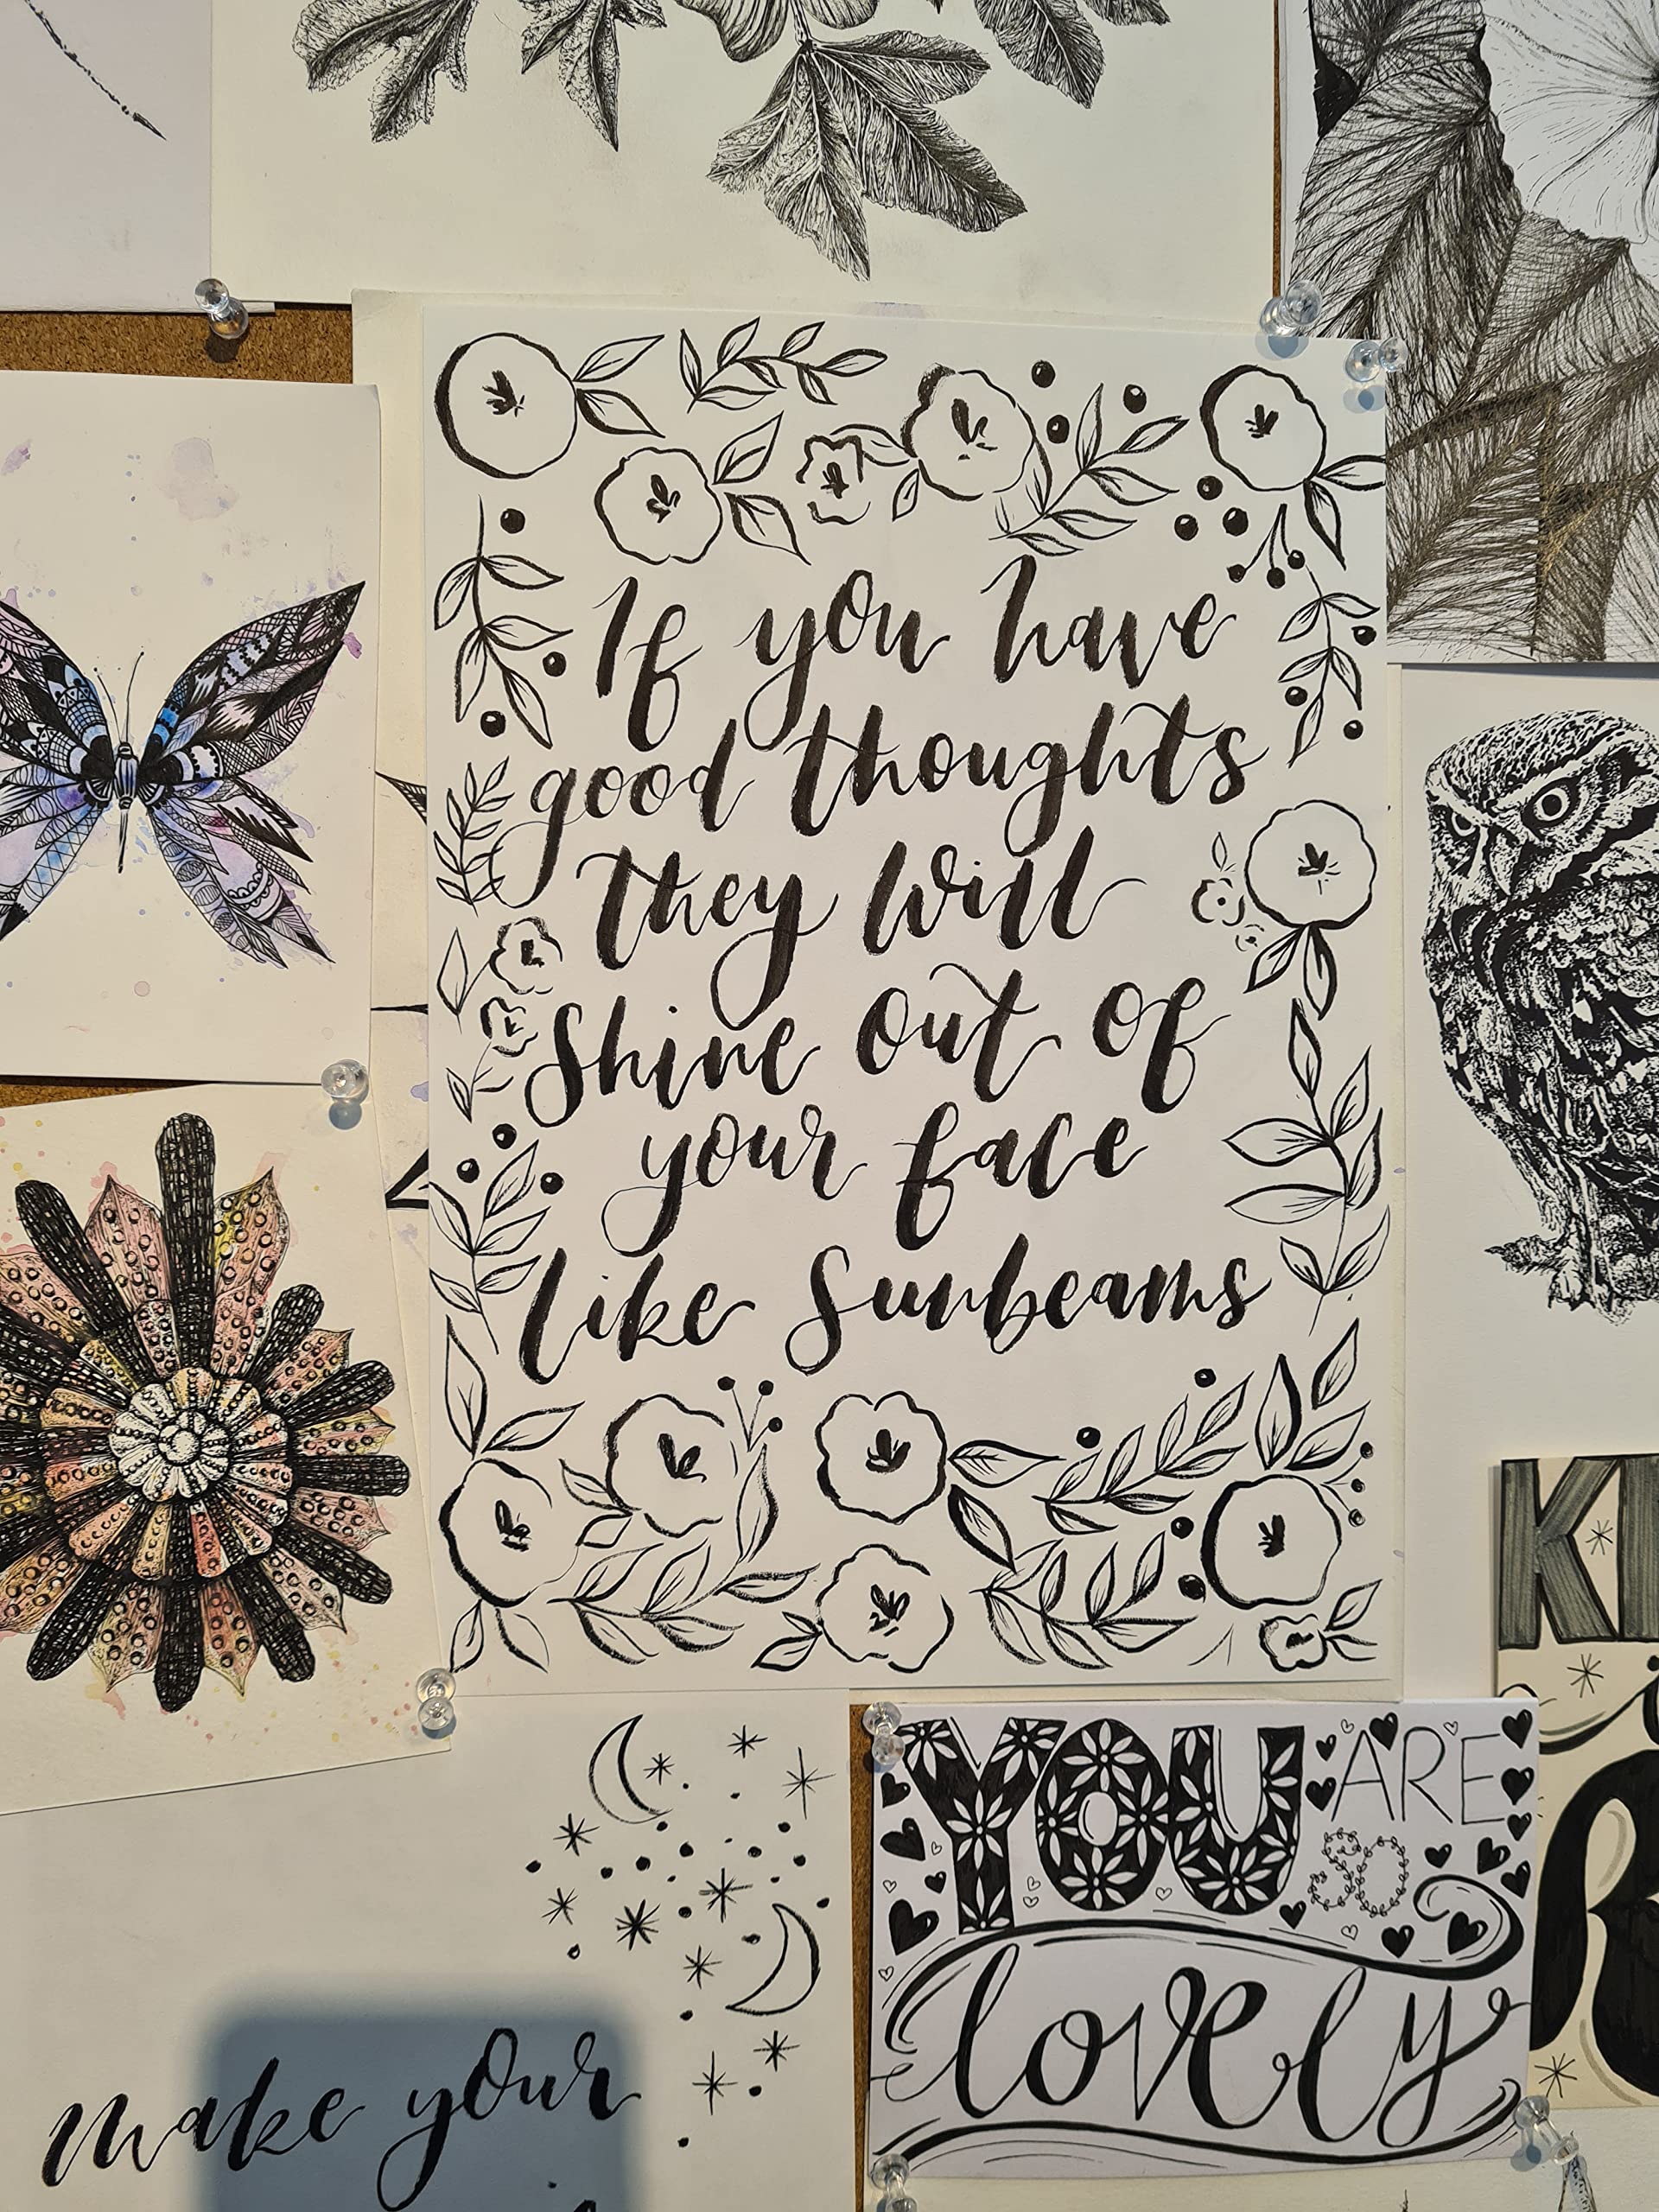 If you have
good thoughts
they will
Shine out of
your face
like Sunbeams
YOU ARE
SO
lovely
make your